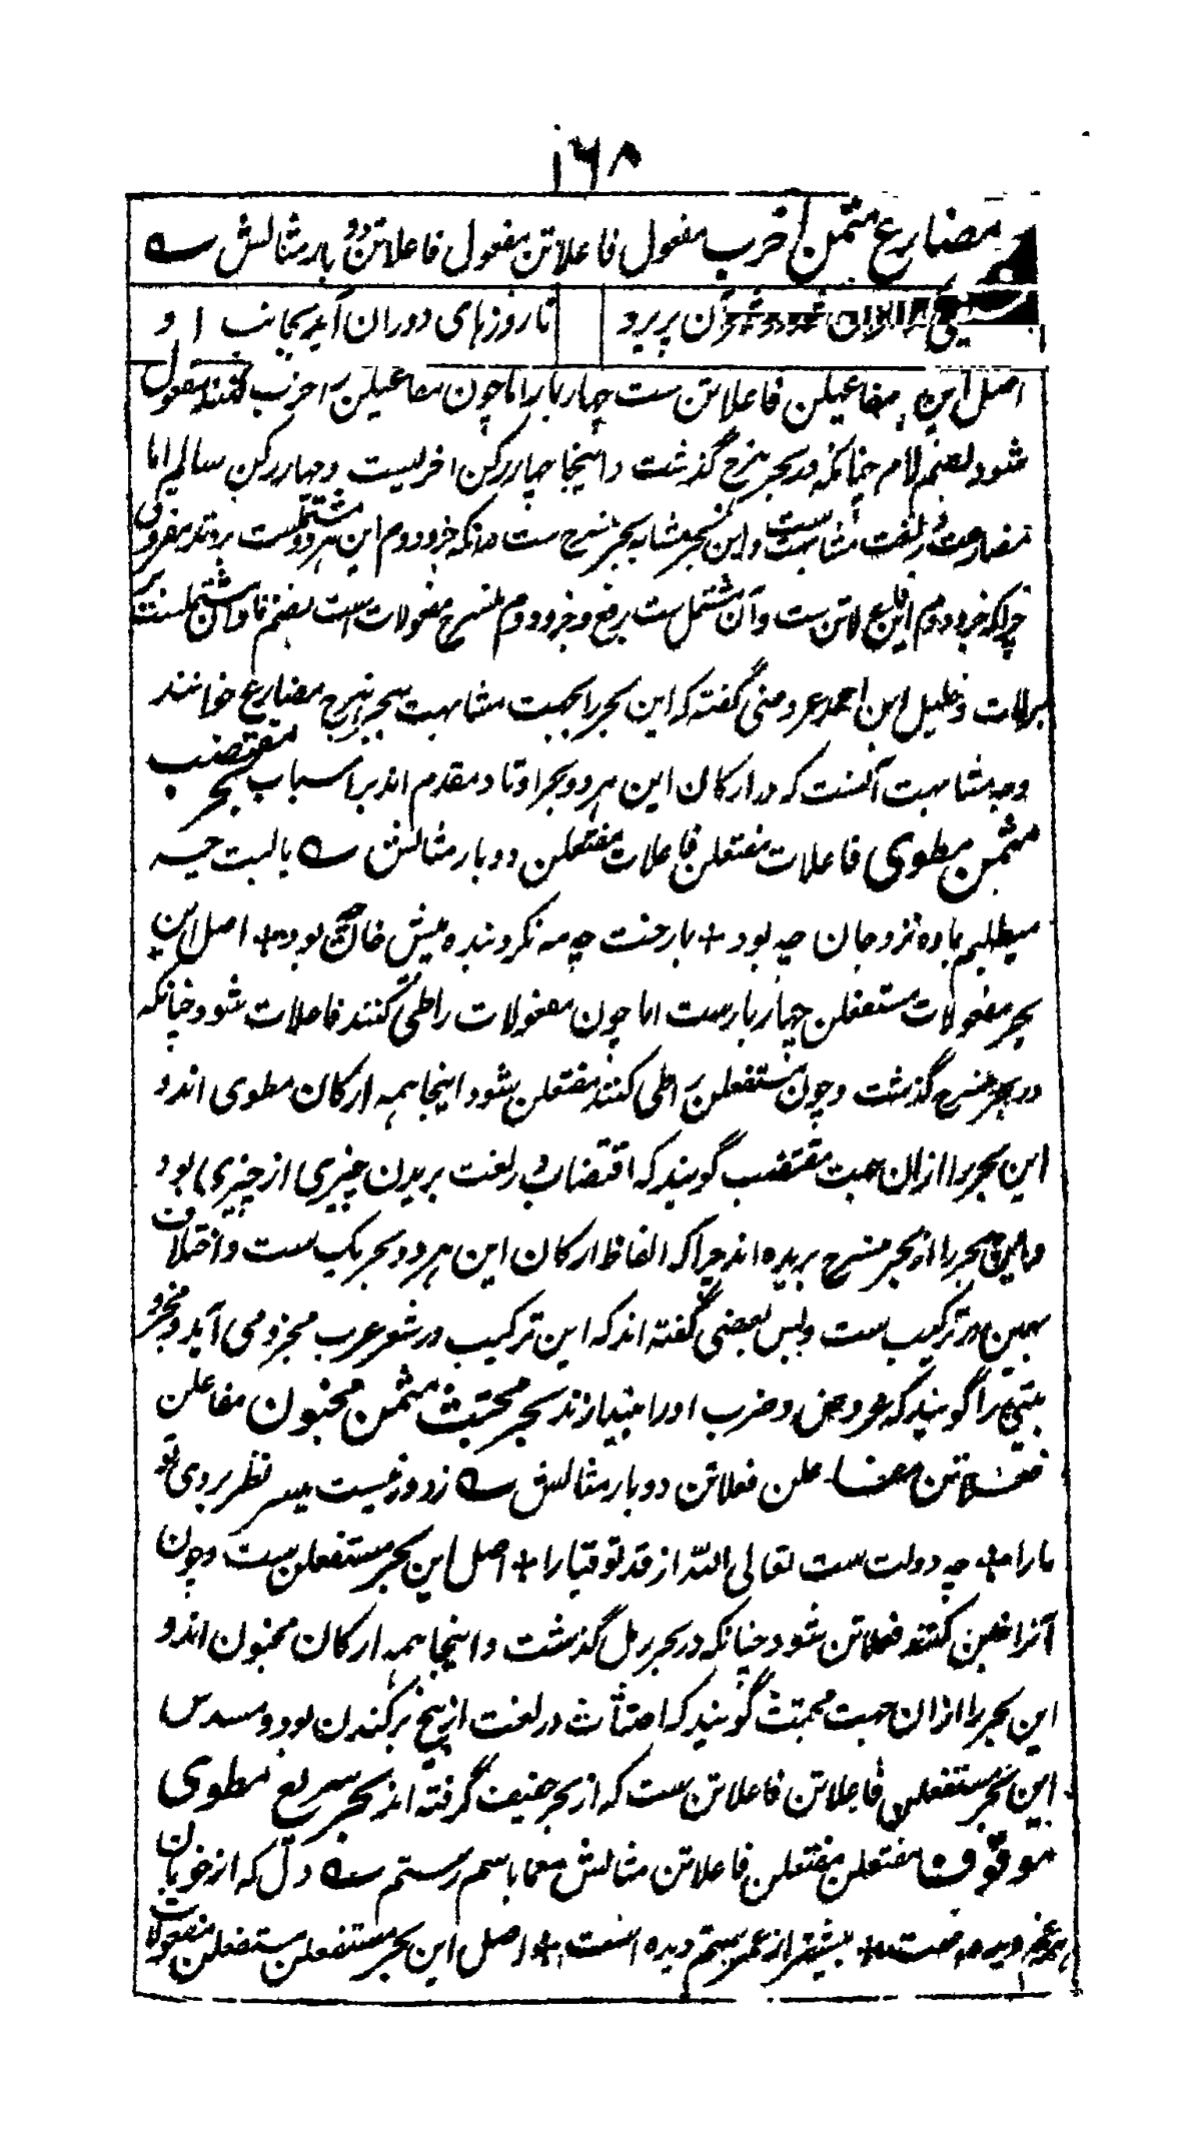 ۱۶۸
مضارع مثمن اخرب مفعول فاعلاتن مفعول فاعلاتن دو بار مثالش
آن پریرو تا روزهای دوران آید بجانب او
اصل این مفاعیلن فاعلاتن ست چهار بار اما چون مفاعیلن را خرب کنند مفعول
شود بضم لام چنانکه در بحر هزج گذشت و اینجا چهار رکن اخربست و چهار رکن سالم اما
مضارعت در لغت مشابهت ست و این بحر مشابه بحر منسرح ست بدانکه جزو دوم این هر دو مشتملست بر وتد مفروق
چراکه جزو دوم این فاع لاتن ست و آن مشتمل ست بر فاع و جزو دوم منسرح مفعولات است بضم تا و آن مشتملست
برلات و خلیل ابن احمد عروضی گفته که این بحر را بجهت مشابهت ببحر هزج مضارع خوانند
وجه مشابهت آنست که در ارکان این هر دو بحر اوتاد مقدم اند بر اسباب بحر مقتضب
مثمن مطوی فاعلات مفتعلن فاعلات مفتعلن دو بار مثالش یا لبت چه
میطلبم باده نزد جان چه بود + با رخت چه مه نگرد بنده پیش خان بود + اصل این
بحر مفعولات مستفعلن چهار بارست اما چون مفعولات را طی کنند فاعلات شود چنانکه
در بحر منسرح گذشت و چون مستفعلن را طی کنند مفتعلن شود اینجا همه ارکان مطوی اند و
این بحر را ازان جهت مقتضب گویند که اقتضاب در لغت بریدن چیزی از چیزی بود
و این بحر را از بحر منسرح بریده اند چراکه الفاظ ارکان این هر دو بحر یک ست و اختلاف
همین در ترکیب ست و بس بعضی گفته اند که این ترکیب در شعر عرب مجزو می آید و مجزو
بیتی را گویند که عروض و ضرب او را بیندازند بحر مجتث مثمن مخبون مفاعلن
فعلاتن مفاعلن فعلاتن دو بار مثالش ز دور نیست میسر نظر بروی تو
مارا + چه دولت ست تعالی الله از قد تو قبا را + اصل این بحر مستفعلن ست و چون
آنرا خبن کنند فعلاتن شود چنانکه در بحر رمل گذشت و اینجا همه ارکان مخبون اند و
این بحر را ازان جهت مجتث گویند که اجتثاث در لغت از بیخ برکندن بود و مسدس
این بحر مستفعلن فاعلاتن فاعلاتن ست که از بحر خفیف گرفته اند بحر سریع مطوی
موقوف مفتعلن مفتعلن فاعلاتن مثالش معما باسم رستم دل که از خوبان
همه غم دیده است + بیشتر از عمر ستم دیده است + اصل این بحر مستفعلن مستفعلن مفعولات